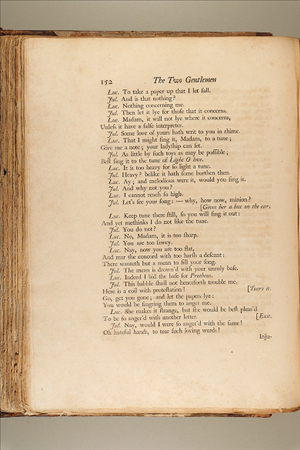 152 The Two Gentlemen
Luc. To take a paper up that I let fall.
Jul. And is that nothing?
Luc. Nothing concerning me.
Jul. Then let it lye for those that it concerns.
Luc. Madam, it will not lye where it concerns,
Unless it have a false interpreter.
Jul. Some love of yours hath writ to you in rhime.
Luc. That I might sing it, Madam, to a tune;
Give me a note; your ladyship can set.
Jul. As little by such toys as may be possible;
Best sing it to the tune of Light O love.
Luc. It is too heavy for so light a tune.
Jul. Heavy? belike it hath some burthen then.
Luc. Ay; and melodious were it, would you sing it.
Jul. And why not you?
Luc. I cannot reach so high.
Jul. Let's see your song: — why, how now, minion?
[Gives her a box on the ear.
Luc. Keep tune there still, so you will sing it out:
And yet methinks I do not like the tune.
Jul. You do not?
Luc. No, Madam, it is too sharp.
Jul. You are too sawcy.
Luc. Nay, now you are too flat,
And mar the concord with too harsh a descant:
There wanteth but a mean to fill your song.
Jul. The mean is drown'd with your unruly base.
Luc. Indeed I bid the base for Protheus.
Jul. This babble shall not henceforth trouble me.
Here is a coil with protestation! [Tears it.
Go, get you gone; and let the papers lye:
You would be fingring them to anger me.
Luc. She makes it strange, but she would be best pleas'd
To be so anger'd with another letter. [Exit.
Jul. Nay, would I were so anger'd with the same!
Oh hateful hands, to tear such loving words!
Inju-